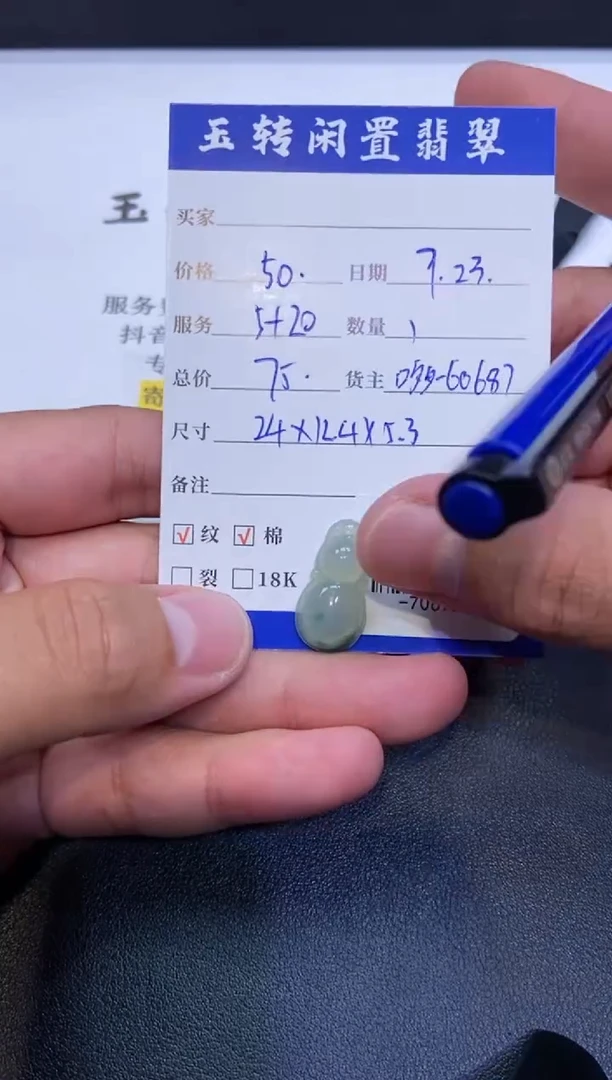 玉转闲置翡翠
买家
价格 50. 日期 7.23.
服务 5+20 数量 1
总价 75. 货主 099-60687
尺寸 24×12.4×5.3
备注
☑纹 ☑棉
☐裂 ☐18K
玉
服务
抖音
寄